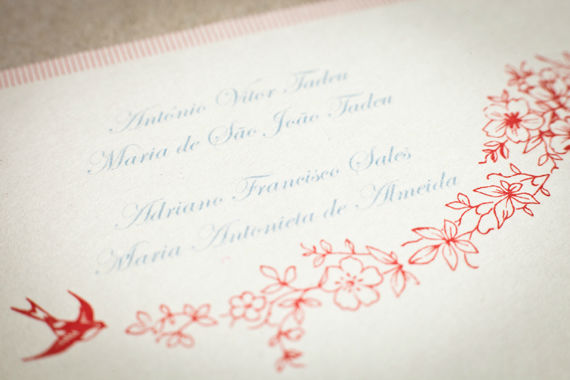 António Vitor Tadeu
Maria de São João Tadeu
Adriano Francisco Sales
Maria Antonieta de Almeida